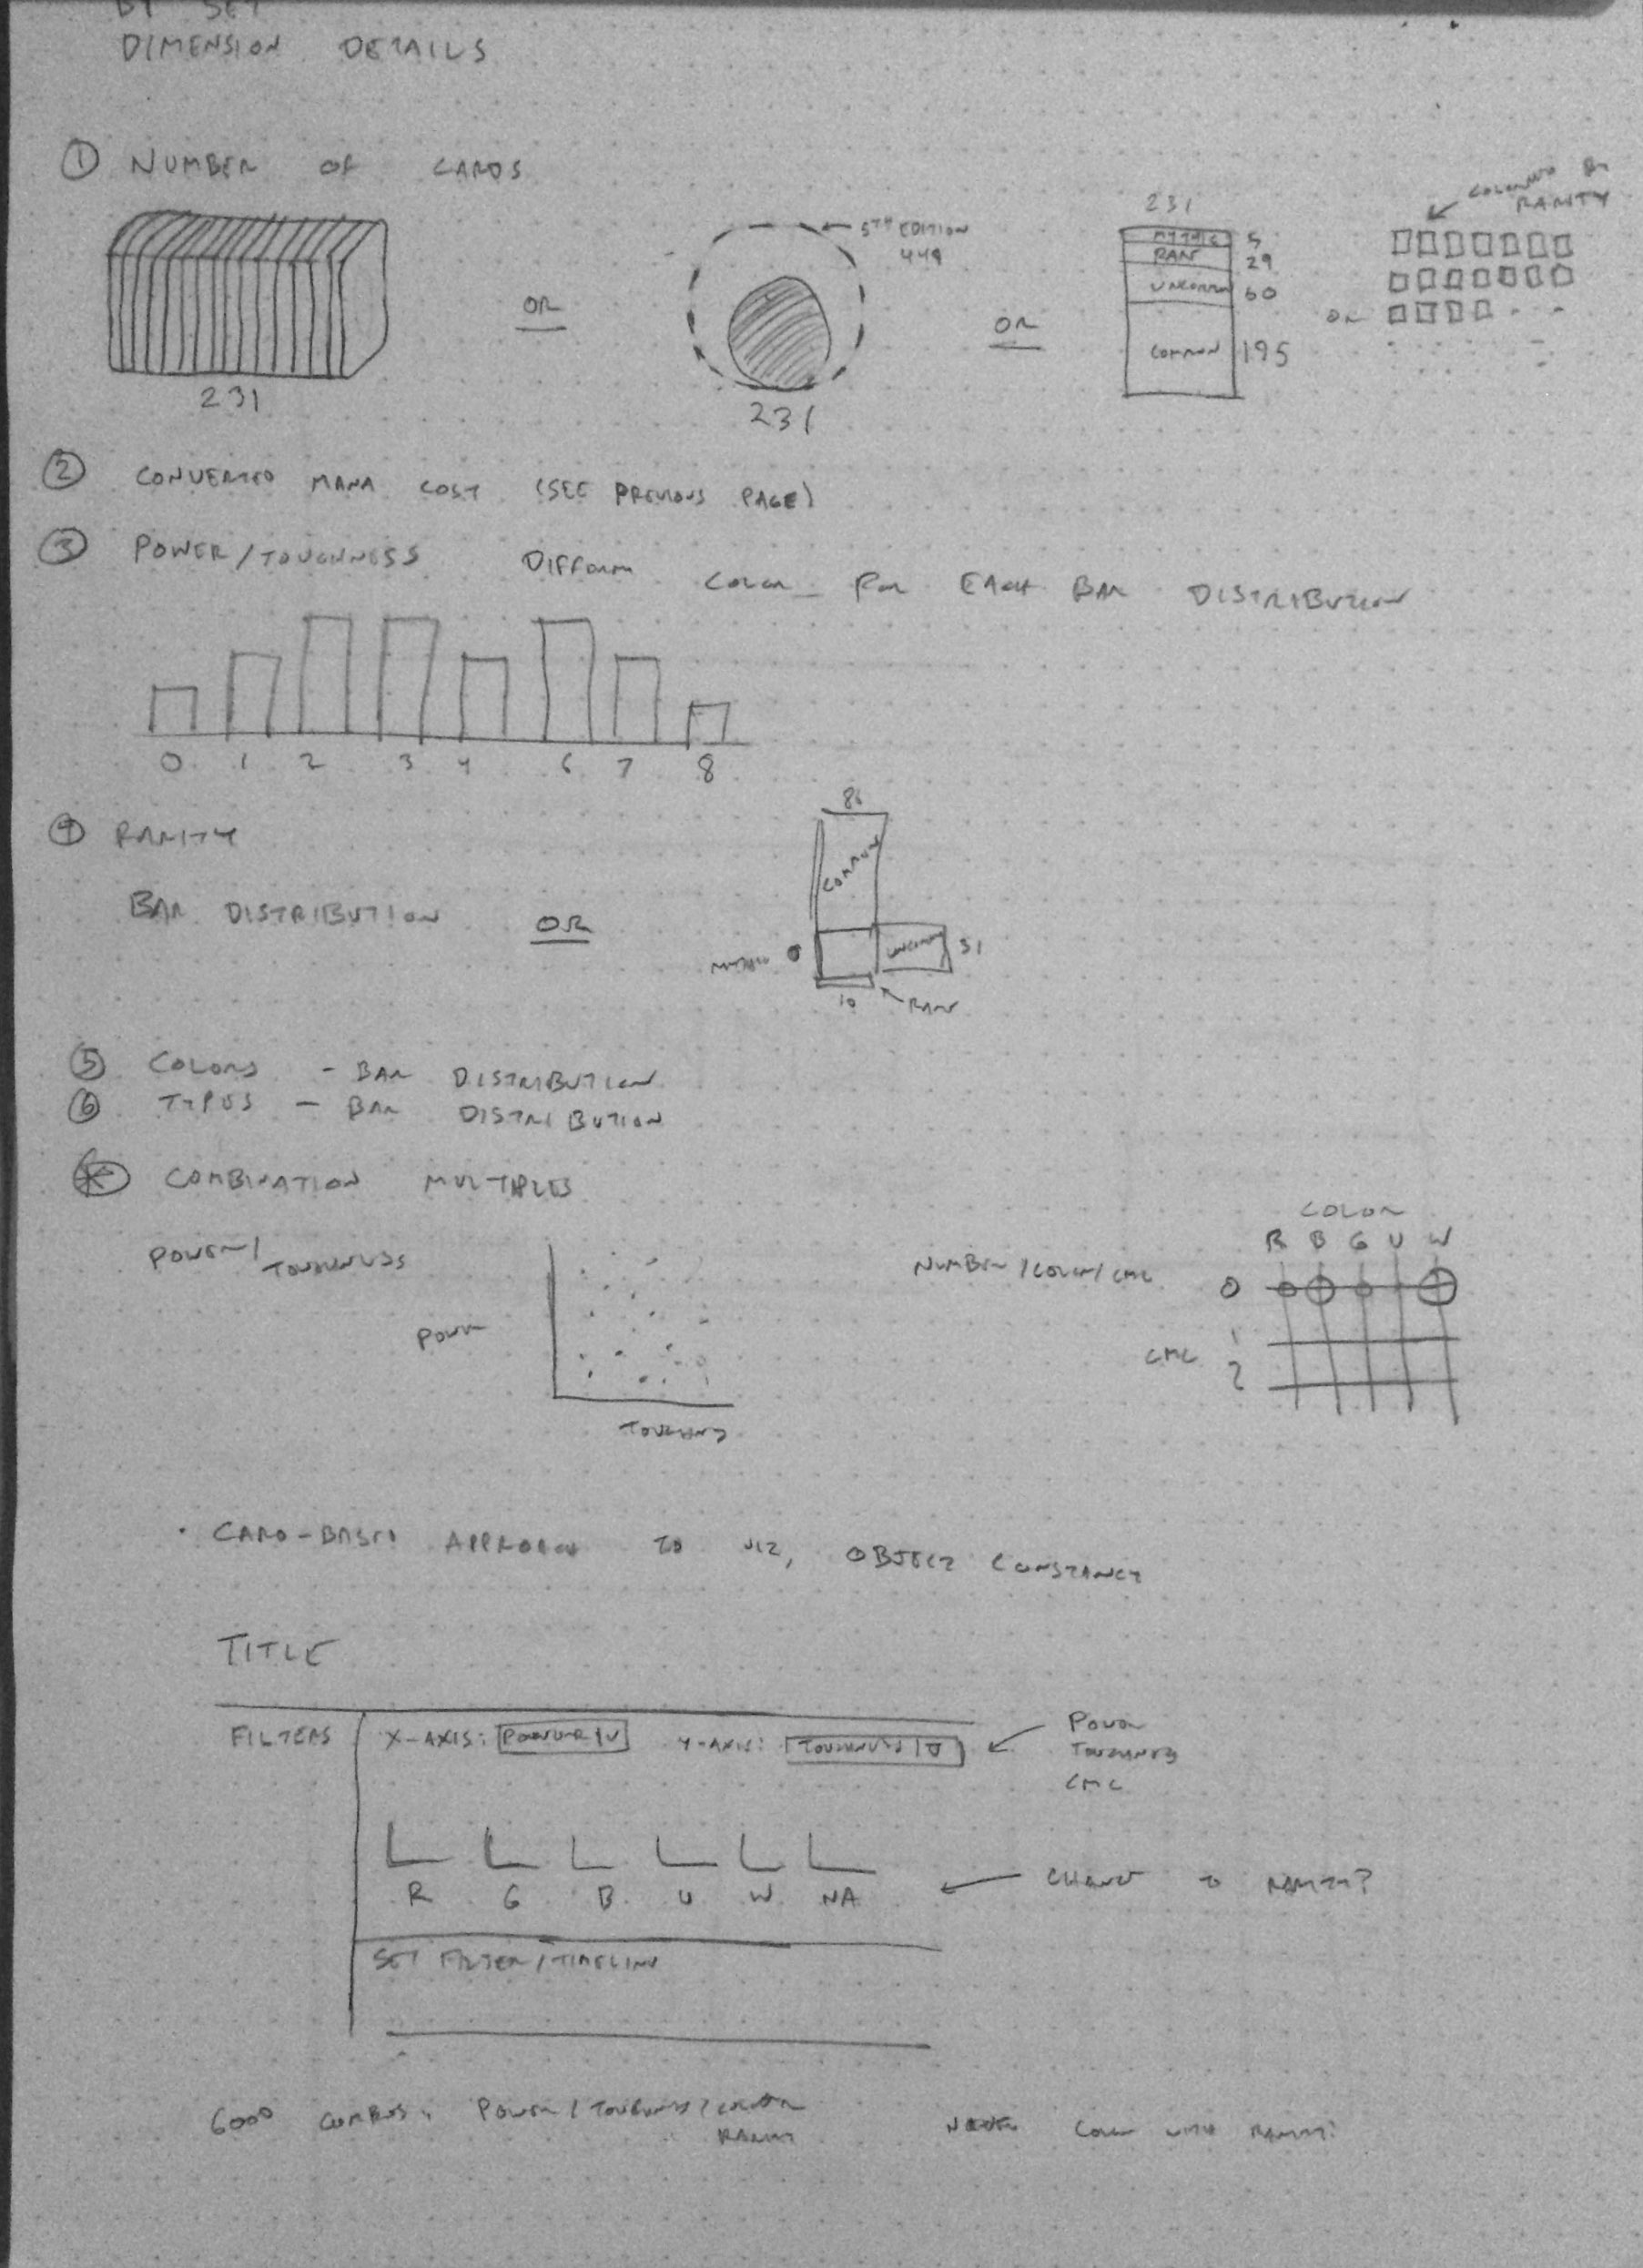 BY SET
DIMENSION DETAILS
① NUMBER OF CARDS
231
OR
5TH EDITION
449
231
OR
231
MYTHIC 5
RARE 29
UNCOMMON 60
COMMON 195
OR
COLORED BY
RARITY
② CONVERTED MANA COST (SEE PREVIOUS PAGE)
③ POWER/TOUGHNESS DIFFERENT COLOR FOR EACH BAR DISTRIBUTION
0 1 2 3 4 6 7 8
④ RARITY
BAR DISTRIBUTION OR
86
COMMON
MYTHIC 0
UNCOMMON 31
10
RARE
⑤ COLORS - BAR DISTRIBUTION
⑥ TYPES - BAR DISTRIBUTION
* COMBINATION MULTIPLES
POWER/TOUGHNESS
POWER
TOUGHNESS
NUMBER/COLOR/CMC
COLOR
R B G U W
0
1
CMC
2
· CARD-BASED APPROACH TO VIZ, OBJECT CONSTANCY
TITLE
FILTERS
X-AXIS: POWER Y-AXIS: TOUGHNESS
POWER
TOUGHNESS
CMC
R G B U W NA
CHANGE TO RARITY?
SET FILTER/TIMELINE
6000 COMBOS: POWER/TOUGHNESS/COLOR
RARITY
COLOR WITH RARITY?